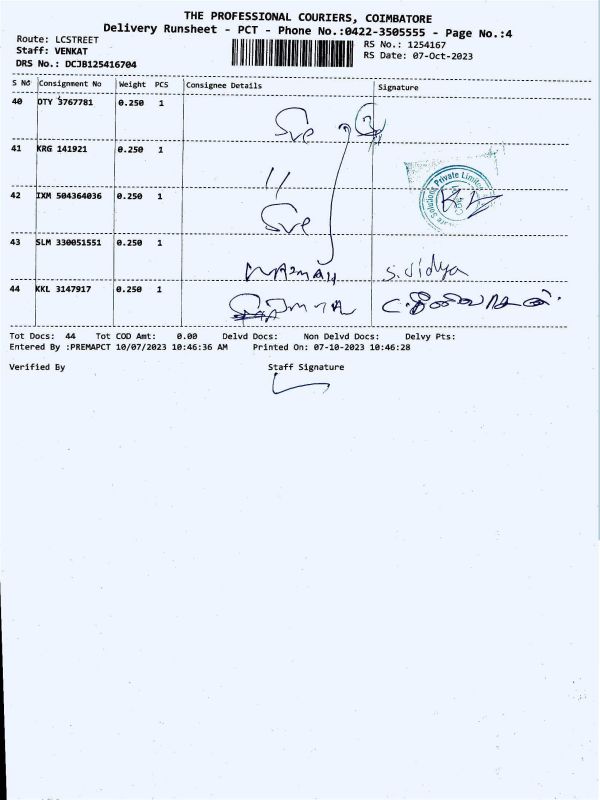 THE PROFESSIONAL COURIERS, COIMBATORE
Delivery Runsheet - PCT - Phone No.:0422-3505555 - Page No.:4
Route: LCSTREET
RS No.: 1254167
Staff: VENKAT
RS Date: 07-Oct-2023
DRS No.: DCJB125416704
S No Consignment No Weight PCS Consignee Details Signature
40 OTY 3767781 0.250 1
41 KRG 141921 0.250 1
Private Limited
42 IXM 504364036 0.250 1
43 SLM 330051551 0.250 1
S. Vidya
44 KKL 3147917 0.250 1
Tot Docs: 44 Tot COD Amt: 0.00 Delvd Docs: Non Delvd Docs: Delvy Pts:
Entered By :PREMAPCT 10/07/2023 10:46:36 AM Printed On: 07-10-2023 10:46:28
Verified By Staff Signature